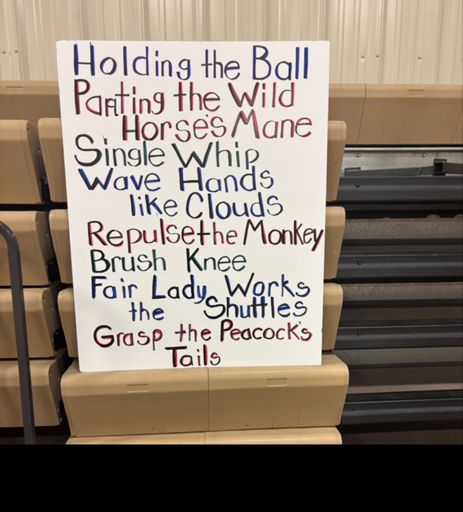 Holding the Ball
Parting the Wild
Horse's Mane
Single Whip
Wave Hands
like Clouds
Repulse the Monkey
Brush Knee
Fair Lady Works
the Shuttles
Grasp the Peacock's
Tails